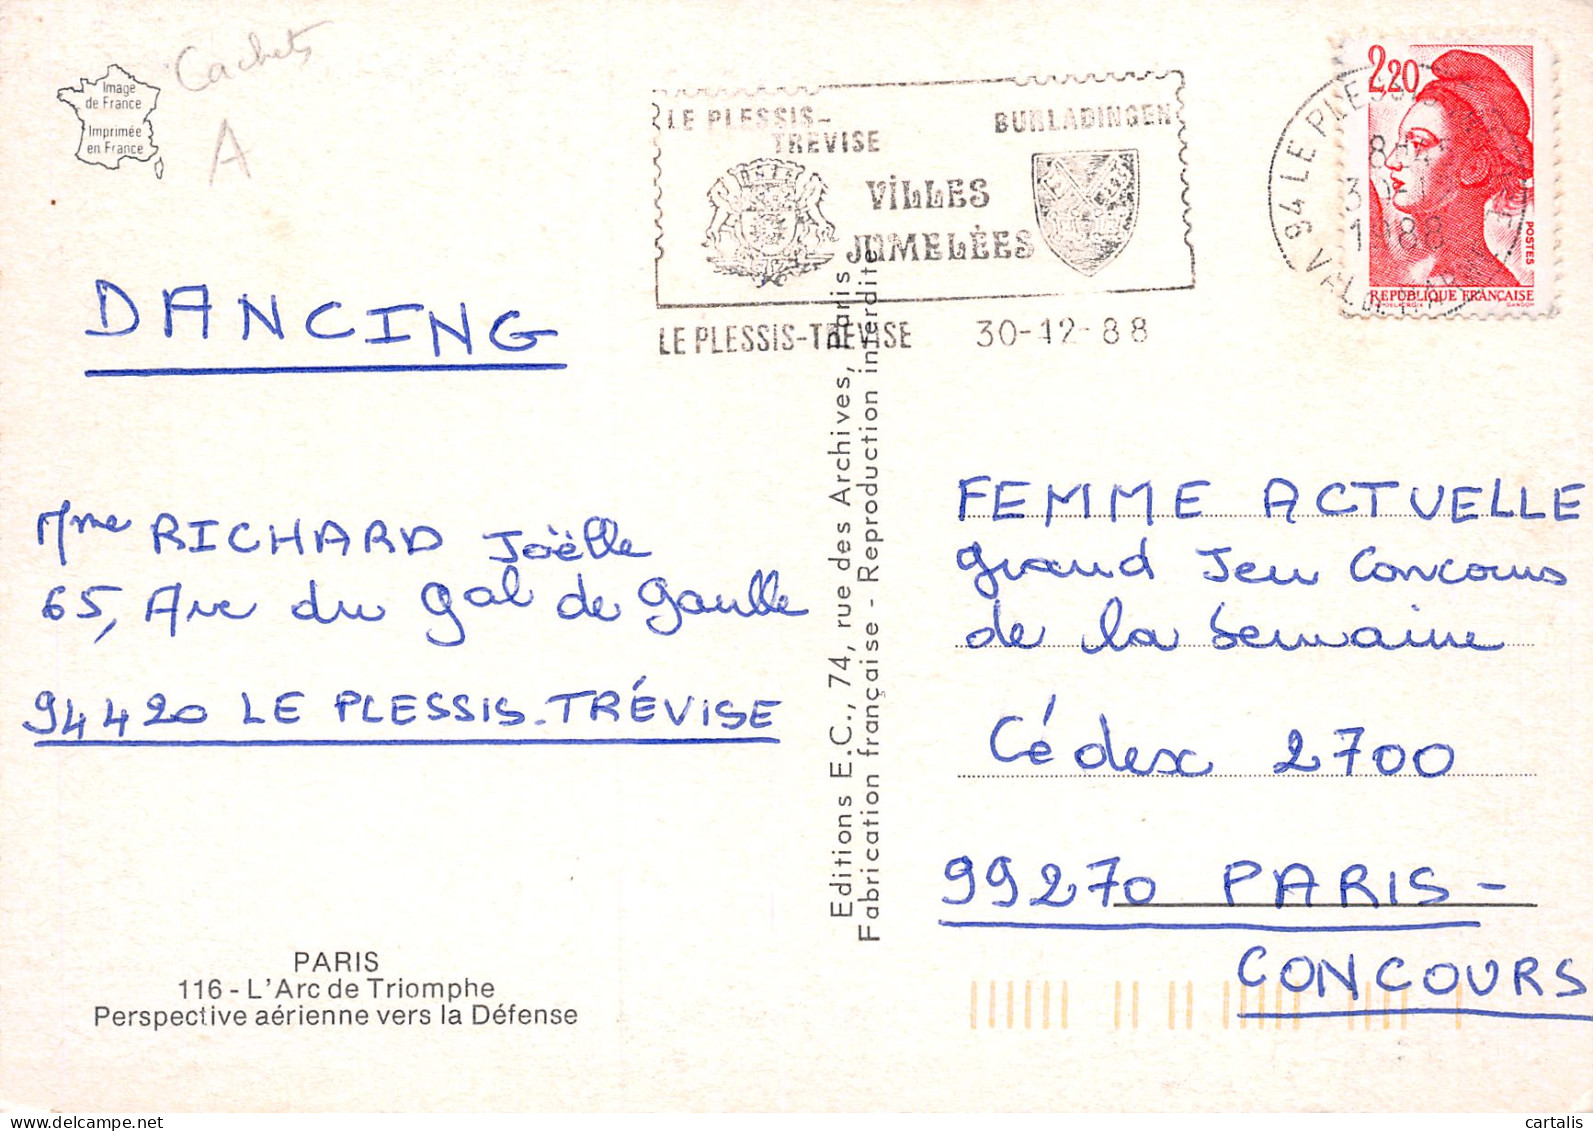 Cachets
A
Image
de France
Imprimée
en France
LE PLESSIS-
TREVISE
BURLADINGEN
VILLES
JUMELÉES
LE PLESSIS-TREVISE 30-12-88
94 LE PLESSIS
1988
2,20
POSTES
REPUBLIQUE FRANÇAISE
DANCING
Mme RICHARD Joëlle
65, Ave du Gal de Gaulle
94420 LE PLESSIS-TRÉVISE
PARIS
116 - L'Arc de Triomphe
Perspective aérienne vers la Défense
Editions E.C., 74, rue des Archives, Paris
Fabrication française - Reproduction interdite
FEMME ACTUELLE
Grand Jeu Concours
de la Semaine
Cédex 2700
99270 PARIS -
CONCOURS
cartalis